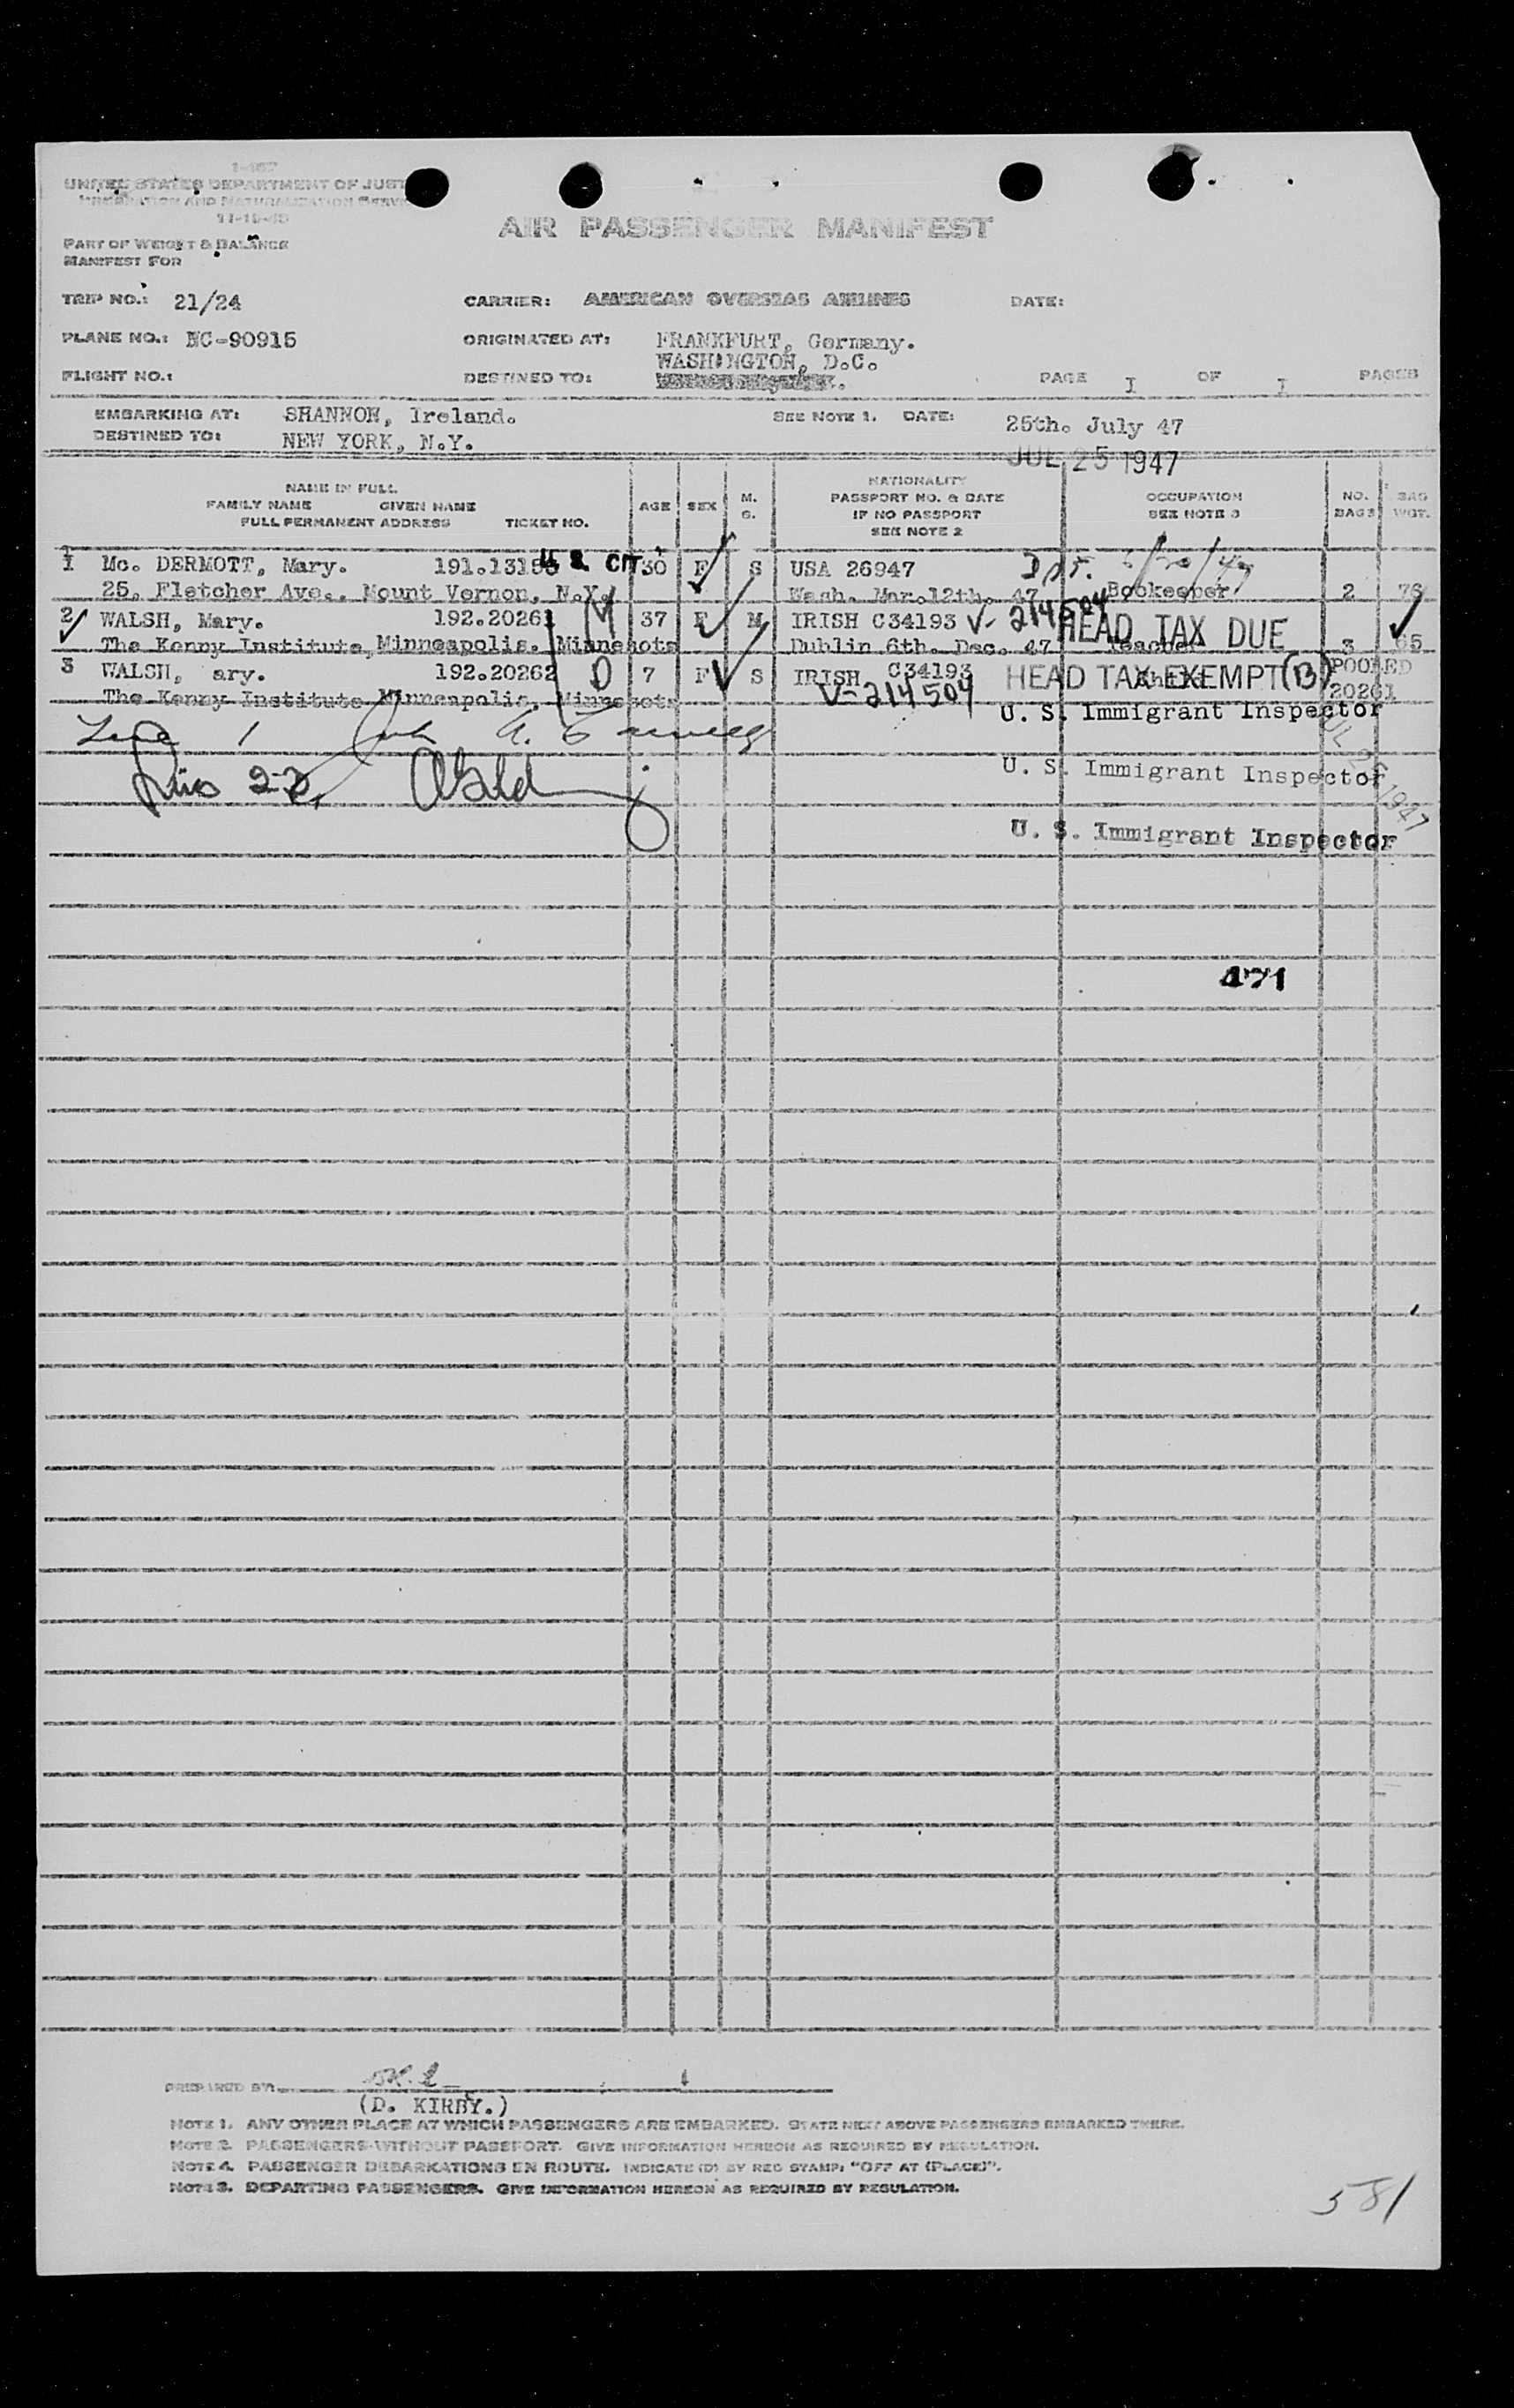 I-467
UNITED STATES DEPARTMENT OF JUST
IMMIGRATION AND NATURALIZATION SERVI
11-15-45
AIR PASSENGER MANIFEST
PART OF WEIGHT & BALANCE
MANIFEST FOR
TRIP NO.: 21/24 CARRIER: AMERICAN OVERSEAS AIRLINES DATE:
PLANE NO.: NC-90915 ORIGINATED AT: FRANKFURT, Germany.
WASHINGTON, D.C.
FLIGHT NO.: DESTINED TO: PAGE I OF I PAGES
EMBARKING AT: SHANNON, Ireland. SEE NOTE 1. DATE: 25th. July 47
DESTINED TO: NEW YORK, N.Y.
JUL 25 1947
NAME IN FULL
FAMILY NAME GIVEN NAME
FULL PERMANENT ADDRESS TICKET NO.
AGE SEX M. S.
NATIONALITY
PASSPORT NO. & DATE
IF NO PASSPORT
SEE NOTE 2
OCCUPATION
SEE NOTE 3
NO. BAGS
BAG WGT.
1 Mc. DERMOTT, Mary. 191.1315 U.S. CIT 30 F S USA 26947
25, Fletcher Ave., Mount Vernon, N.Y. Wash. Mar.12th. 47 Bookeeper 2 76
2 WALSH, Mary. 192.20261 M 37 F M IRISH C34193 V-214504 HEAD TAX DUE
The Kenny Institute, Minneapolis. Minnesota Dublin 6th. Dec. 47 Teacher 3 65
3 WALSH, ary. 192.20262 D 7 F S IRISH C34193 HEAD TAX EXEMPT (B) POOLED
The Kenny Institute Minneapolis, Minnesota V-214504 20261
U. S. Immigrant Inspector
U. S. Immigrant Inspector
U. S. Immigrant Inspector
1947
471
PREPARED BY:
(D. KIRBY.)
NOTE 1. ANY OTHER PLACE AT WHICH PASSENGERS ARE EMBARKED. STATE NEXT ABOVE PASSENGERS EMBARKED THERE.
NOTE 2. PASSENGERS WITHOUT PASSPORT. GIVE INFORMATION HEREON AS REQUIRED BY REGULATION.
NOTE 4. PASSENGER DEBARKATIONS EN ROUTE. INDICATE (D) BY RED STAMP: "OFF AT (PLACE)".
NOTE 3. DEPARTING PASSENGERS. GIVE INFORMATION HEREON AS REQUIRED BY REGULATION.
581